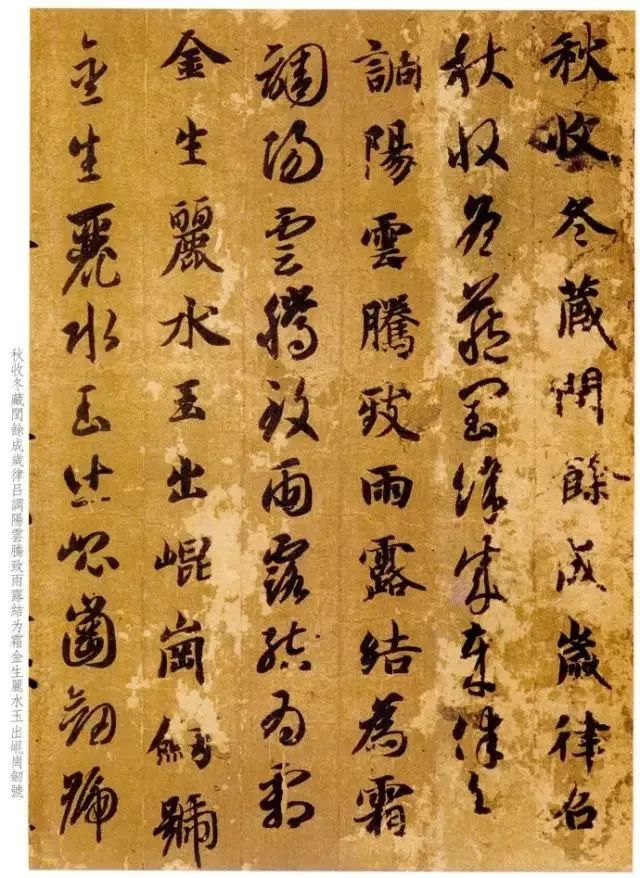 秋收冬藏閏餘成歲律吕
秋收冬藏閏餘成歲律吕
調陽雲騰致雨露結為霜
調陽雲騰致雨露結為霜
金生麗水玉出崐崗劎號
金生麗水玉出崐崗劎號
秋收冬藏閏餘成歲律吕調陽雲騰致雨露結为霜金生麗水玉出崐崗劎號